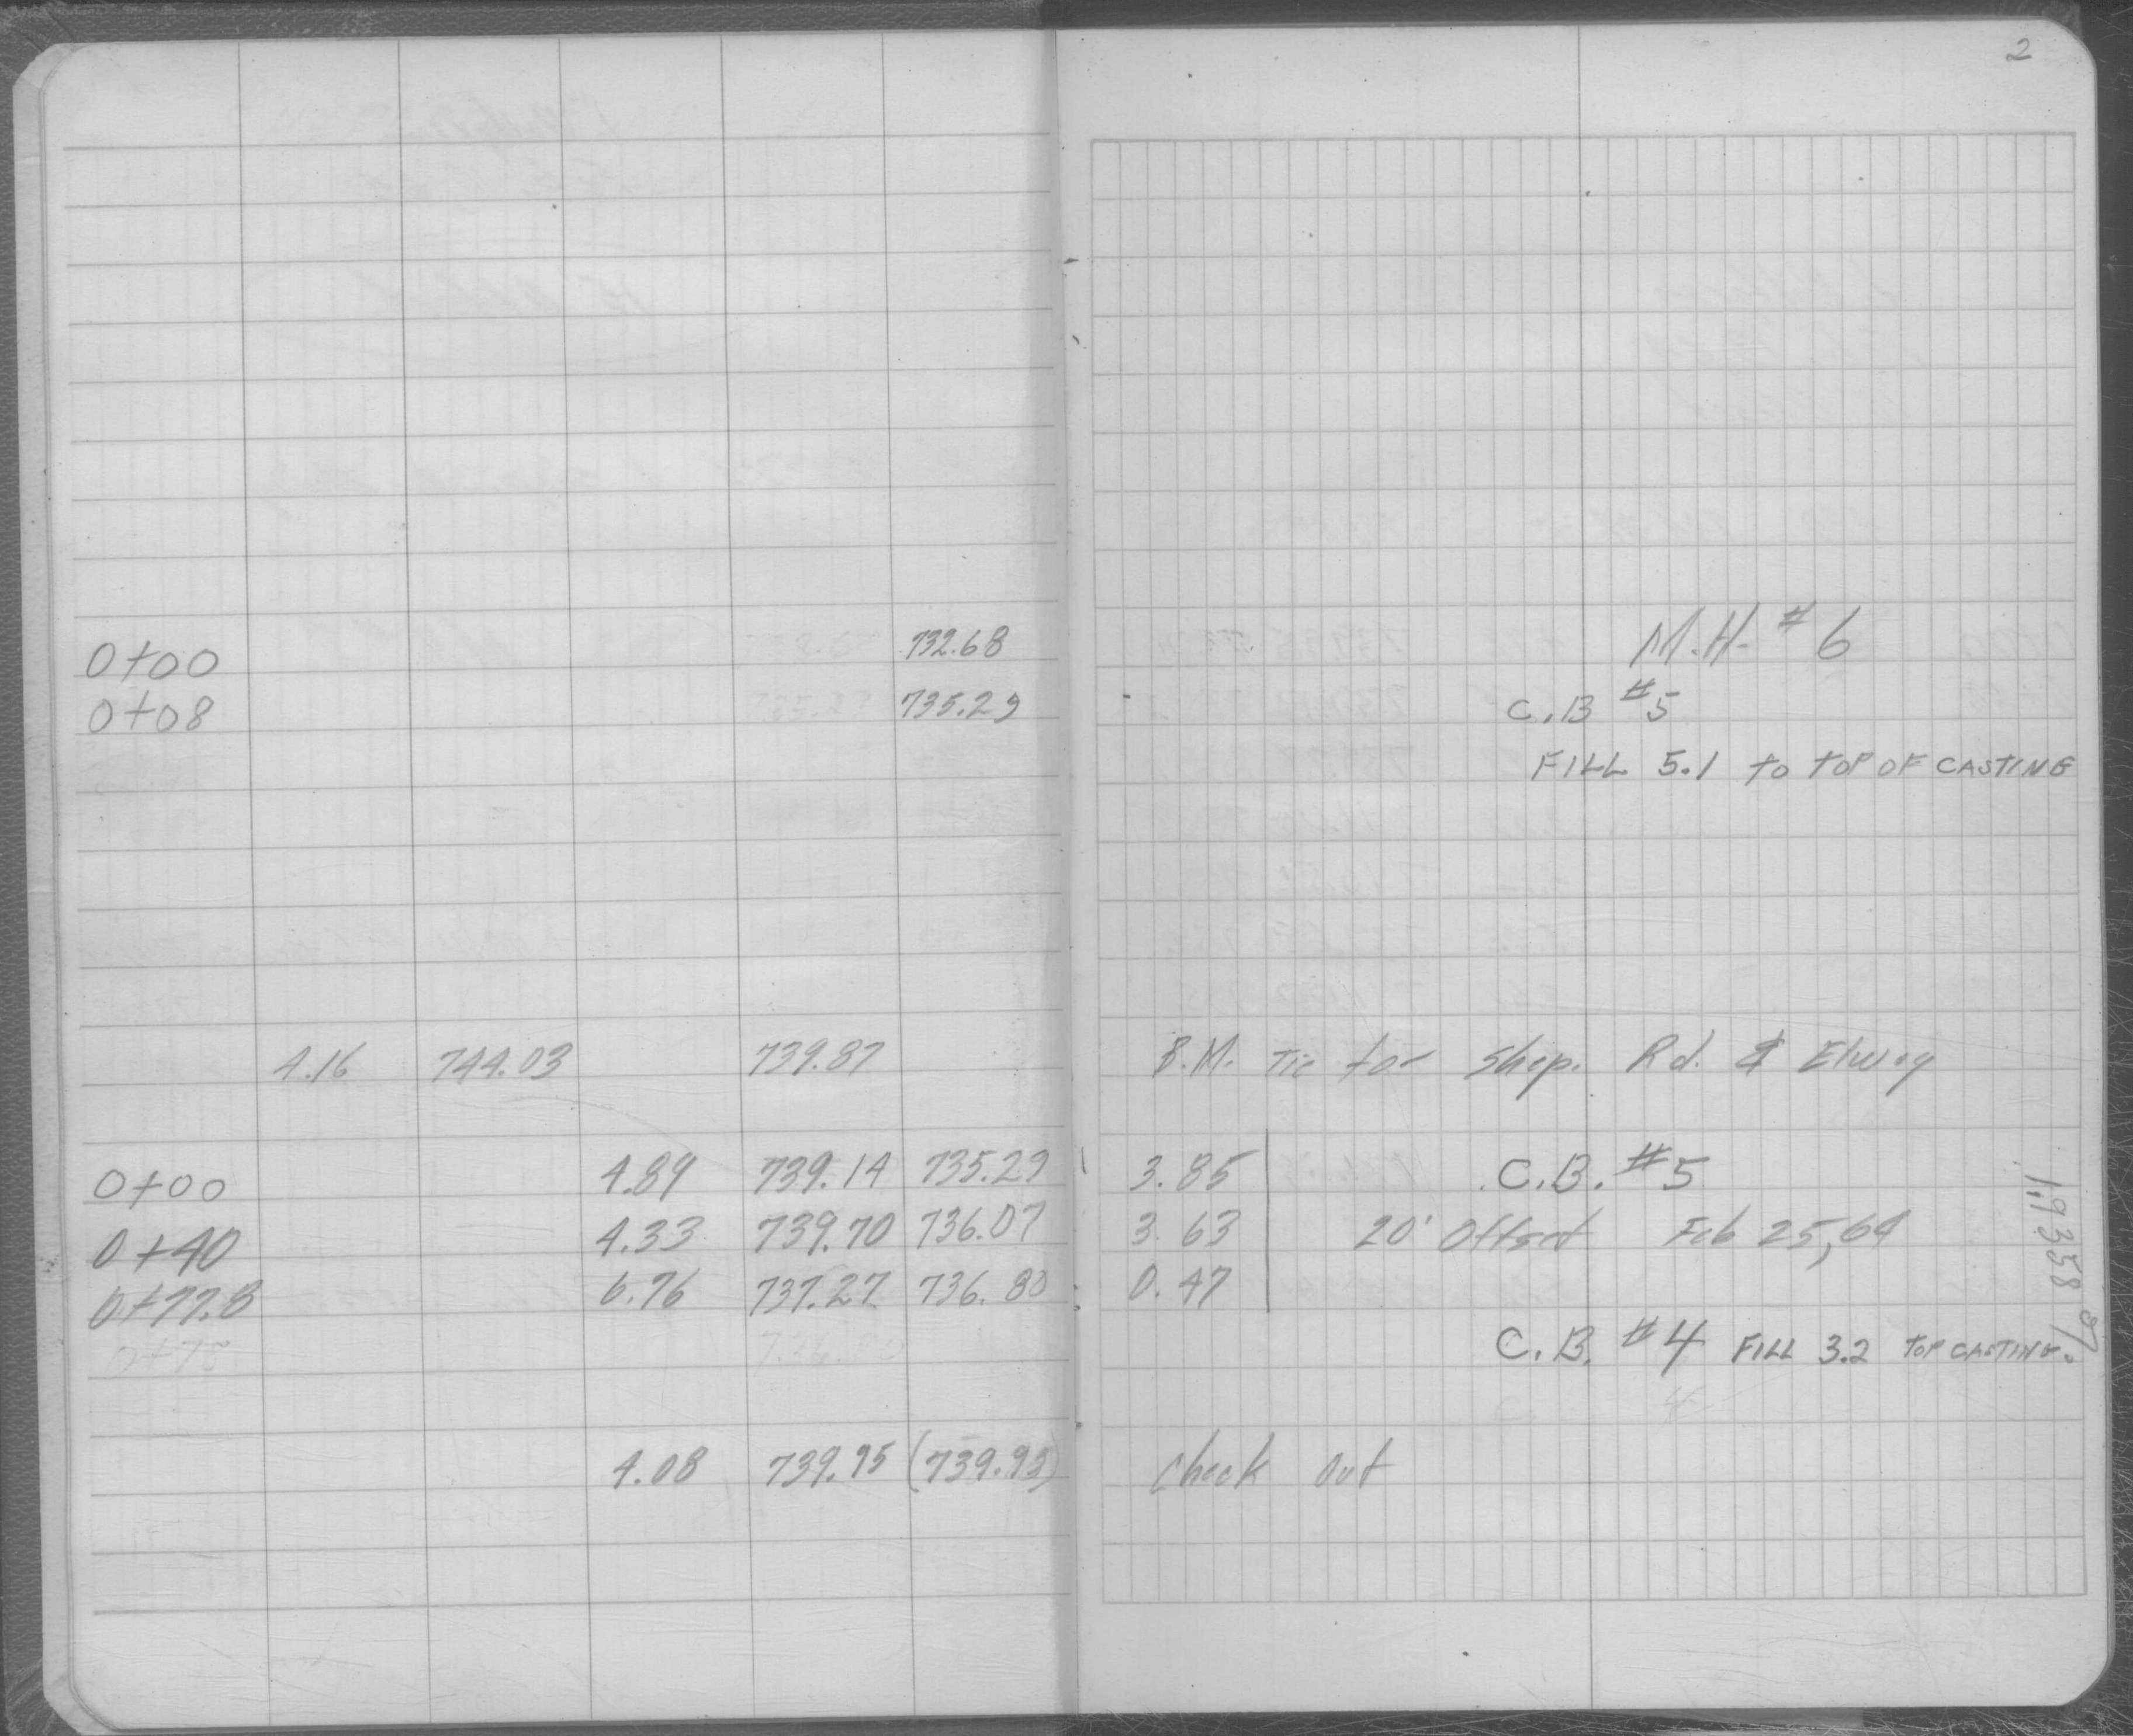 2
0+00 732.68 M.H. #6
0+08 735.29 C.B #5
FILL 5.1 to TOP OF CASTING
4.16 744.03 739.87 B.M. Tie for Shep. Rd. & Elway
0+00 4.89 739.14 735.29 3.85 C.B. #5
0+40 4.33 739.70 736.07 3.63 20' Offset Feb 25, 64
0+77.8 6.76 737.27 736.80 0.47
0+78 736.80 C.B. #4 FILL 3.2 TOP CASTING.
4.08 739.95 (739.95) Check Out